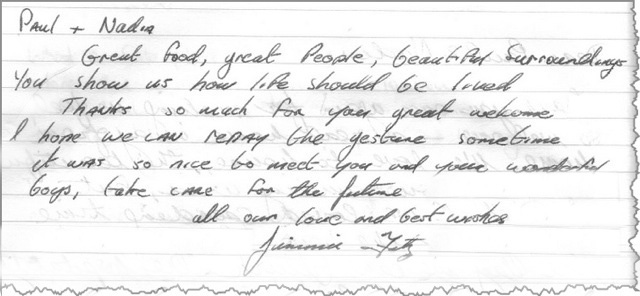 Paul + Nadia
Great food, great People, beautiful Surroundings
You show us how life should be lived
Thanks so much for your great welcome
I hope we can repay the gesture sometime
it was so nice to meet you and your wonderful
boys, take care for the future
all our love and best wishes
Jimmie